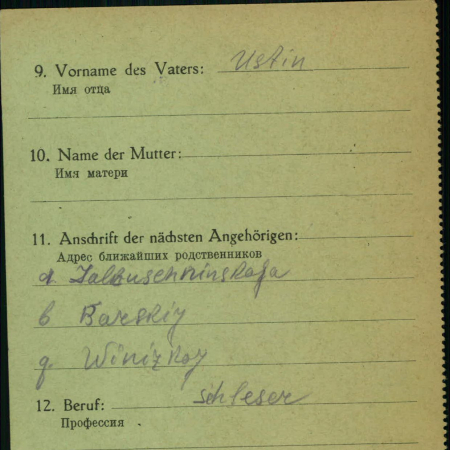 9. Vorname des Vaters: Ustin
Имя отца
10. Name der Mutter:
Имя матери
11. Anschrift der nächsten Angehörigen:
Адрес ближайших родственников
b Barskiy
q. Winizkoy
12. Beruf: Schleser
Профессия